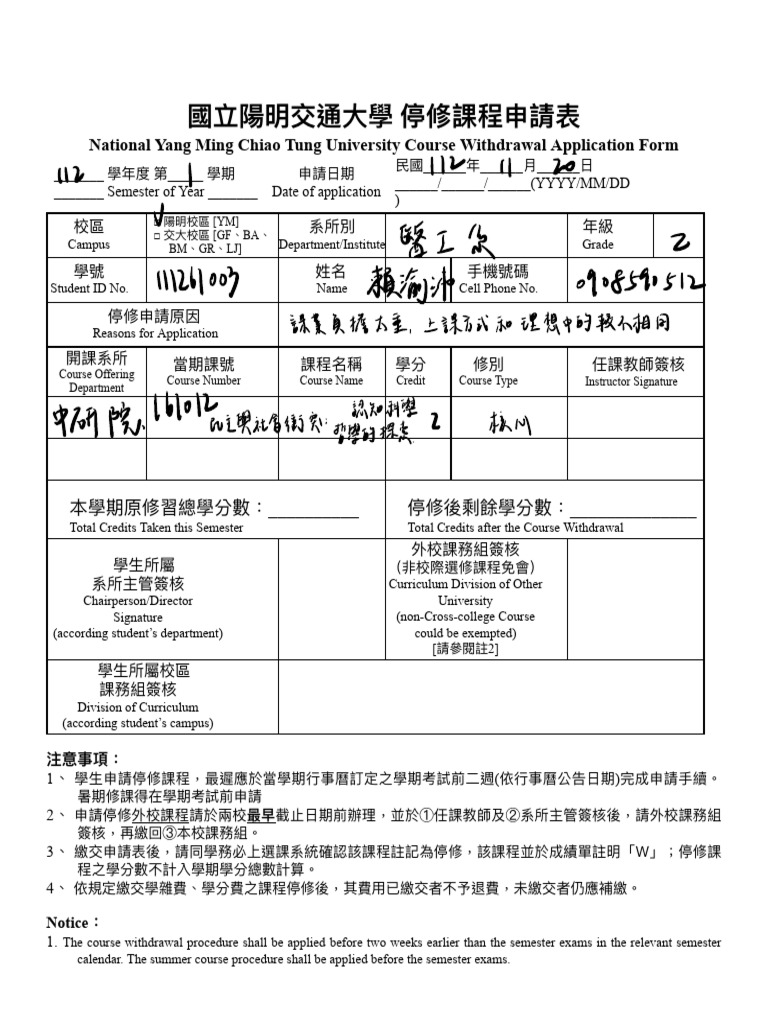 國立陽明交通大學 停修課程申請表
National Yang Ming Chiao Tung University Course Withdrawal Application Form
112 學年度 第 1 學期 申請日期 民國 112 年 11 月 20 日
_______ Semester of Year _______ Date of application ______/______/______(YYYY/MM/DD
)
校區
Campus
□ 陽明校區 [YM]
□ 交大校區 [GF、BA、
BM、GR、LJ]
系所別
Department/Institute
醫工系
年級
Grade
2
學號
Student ID No.
111261003
姓名
Name
賴渝
手機號碼
Cell Phone No.
0908590512
停修申請原因
Reasons for Application
課業負擔太重, 上課方式和理想中的較不相同
開課系所
Course Offering
Department
當期課號
Course Number
課程名稱
Course Name
學分
Credit
修別
Course Type
任課教師簽核
Instructor Signature
中研院
161012
民主與社會衝突:
認知科學
哲學的探索
2
核心
本學期原修習總學分數：___________
Total Credits Taken this Semester
停修後剩餘學分數：_______________
Total Credits after the Course Withdrawal
學生所屬
系所主管簽核
Chairperson/Director
Signature
(according student’s department)
外校課務組簽核
(非校際選修課程免會)
Curriculum Division of Other
University
(non-Cross-college Course
could be exempted)
[請參閱註2]
學生所屬校區
課務組簽核
Division of Curriculum
(according student’s campus)
注意事項：
1、 學生申請停修課程，最遲應於當學期行事曆訂定之學期考試前二週(依行事曆公告日期)完成申請手續。
暑期修課得在學期考試前申請
2、 申請停修外校課程請於兩校最早截止日期前辦理，並於①任課教師及②系所主管簽核後，請外校課務組
簽核，再繳回③本校課務組。
3、 繳交申請表後，請同學務必上選課系統確認該課程註記為停修，該課程並於成績單註明「W」；停修課
程之學分數不計入學期學分總數計算。
4、 依規定繳交學雜費、學分費之課程停修後，其費用已繳交者不予退費，未繳交者仍應補繳。
Notice：
1. The course withdrawal procedure shall be applied before two weeks earlier than the semester exams in the relevant semester
calendar. The summer course procedure shall be applied before the semester exams.